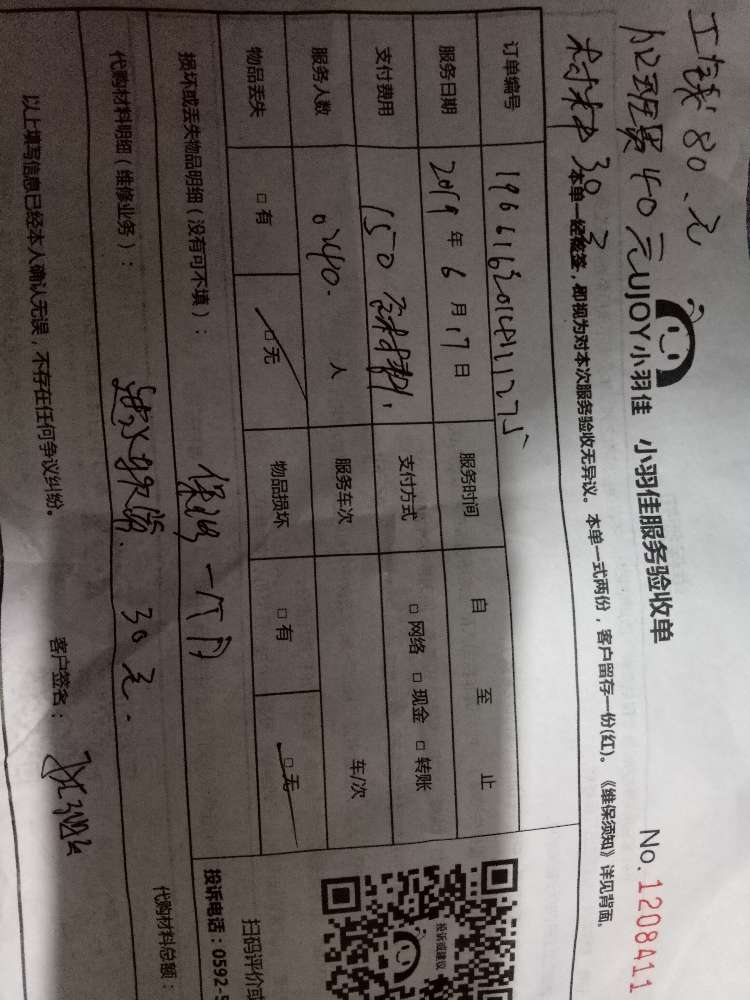 工钱80.元
加班费40元
材料30.元
UJOY小羽佳 小羽佳服务验收单
No.1208411
本单一经签签,即视为对本次服务验收无异议。本单一式两份,客户留存一份(红)。《维保须知》详见背面。
订单编号
服务日期 2019年6月17日 服务时间 自 至 止
支付费用 150 含材料. 支付方式 □网络 □现金 □转账
服务人数 人 服务车次 车/次
物品丢失 □有 □无 物品损坏 □有 □无
损坏或丢失物品明细(没有可不填): 保修一个月
代购材料明细(维修业务): 进水软管. 30元.
代购材料总额:
以上填写信息已经本人确认无误,不存在任何争议纠纷。 客户签名:
投诉或建议
扫码评价或
投诉电话:0592-5